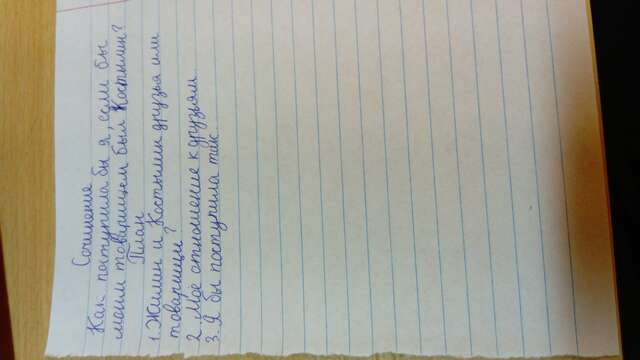 Сочинение
Как поступила бы я, если бы
моим товарищем был Костылин?
План
1. Жилин и Костылин друзья или
товарищи?
2. Моё отношение к друзьям.
3. Я бы поступила так...